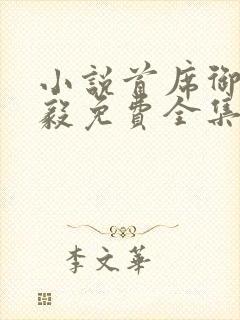 小說首席御
毅免費全集
李文華